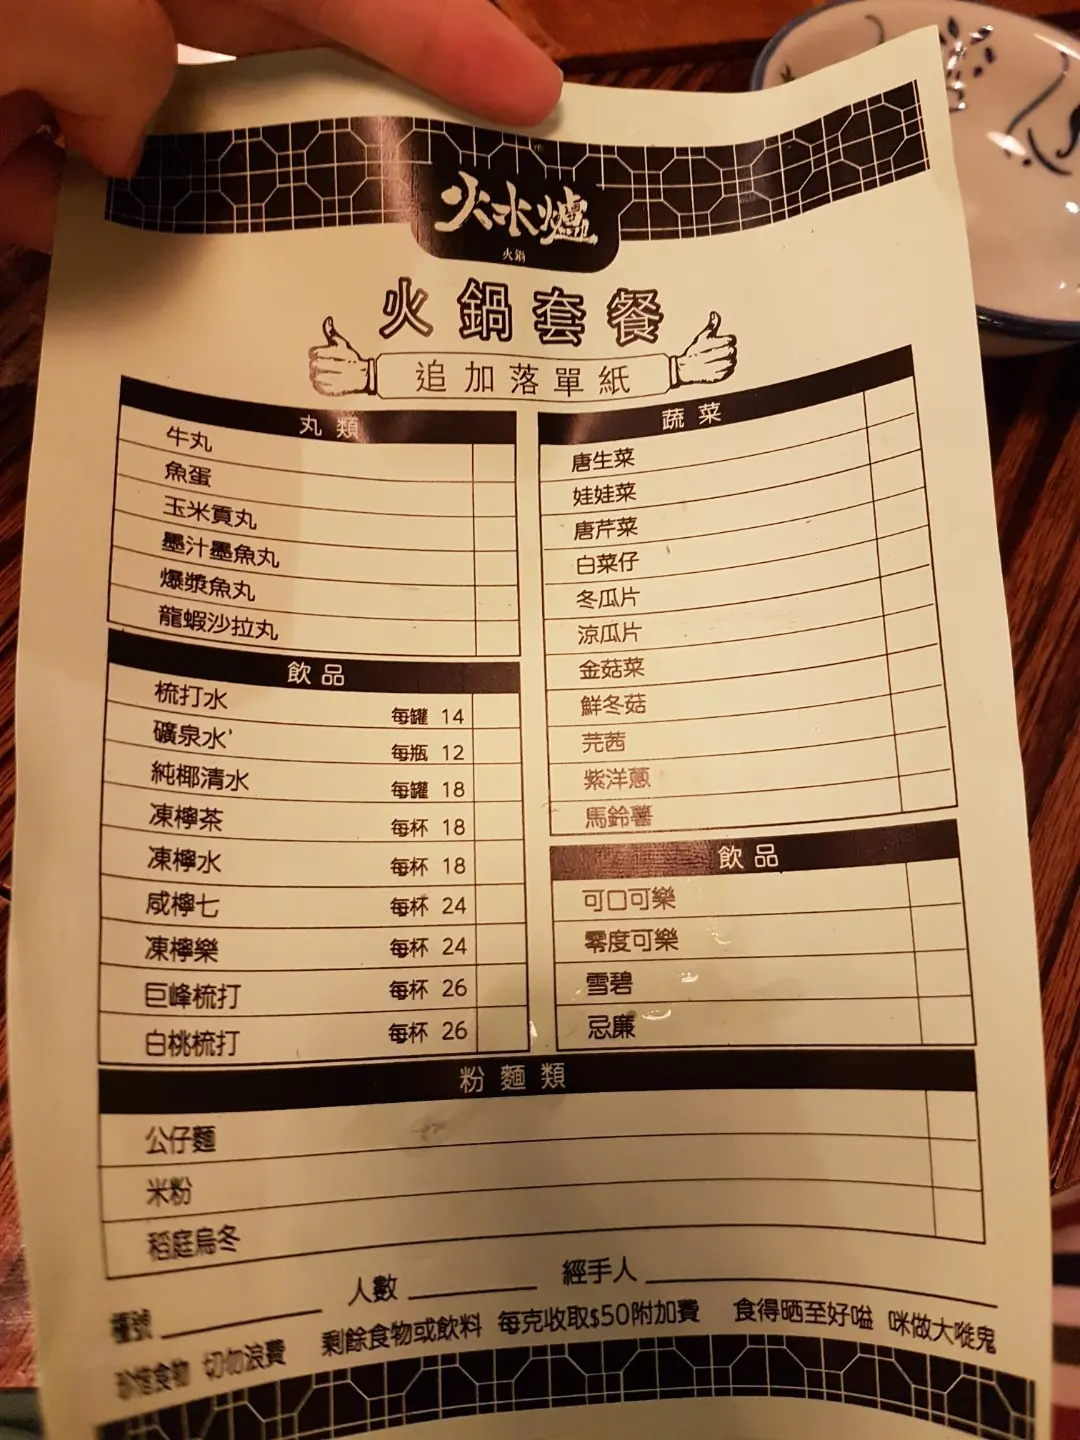 火水爐
火鍋
火鍋套餐
追加落單紙
丸類
牛丸
魚蛋
玉米貢丸
墨汁墨魚丸
爆漿魚丸
龍蝦沙拉丸
飲品
梳打水 每罐 14
礦泉水 每瓶 12
純椰清水 每罐 18
凍檸茶 每杯 18
凍檸水 每杯 18
咸檸七 每杯 24
凍檸樂 每杯 24
巨峰梳打 每杯 26
白桃梳打 每杯 26
蔬菜
唐生菜
娃娃菜
唐芹菜
白菜仔
冬瓜片
涼瓜片
金菇菜
鮮冬菇
芫茜
紫洋蔥
馬鈴薯
飲品
可口可樂
零度可樂
雪碧
忌廉
粉麵類
公仔麵
米粉
稻庭烏冬
檯號 人數 經手人
珍惜食物 切勿浪費 剩餘食物或飲料 每克收取$50附加費 食得晒至好嗌 咪做大嘥鬼